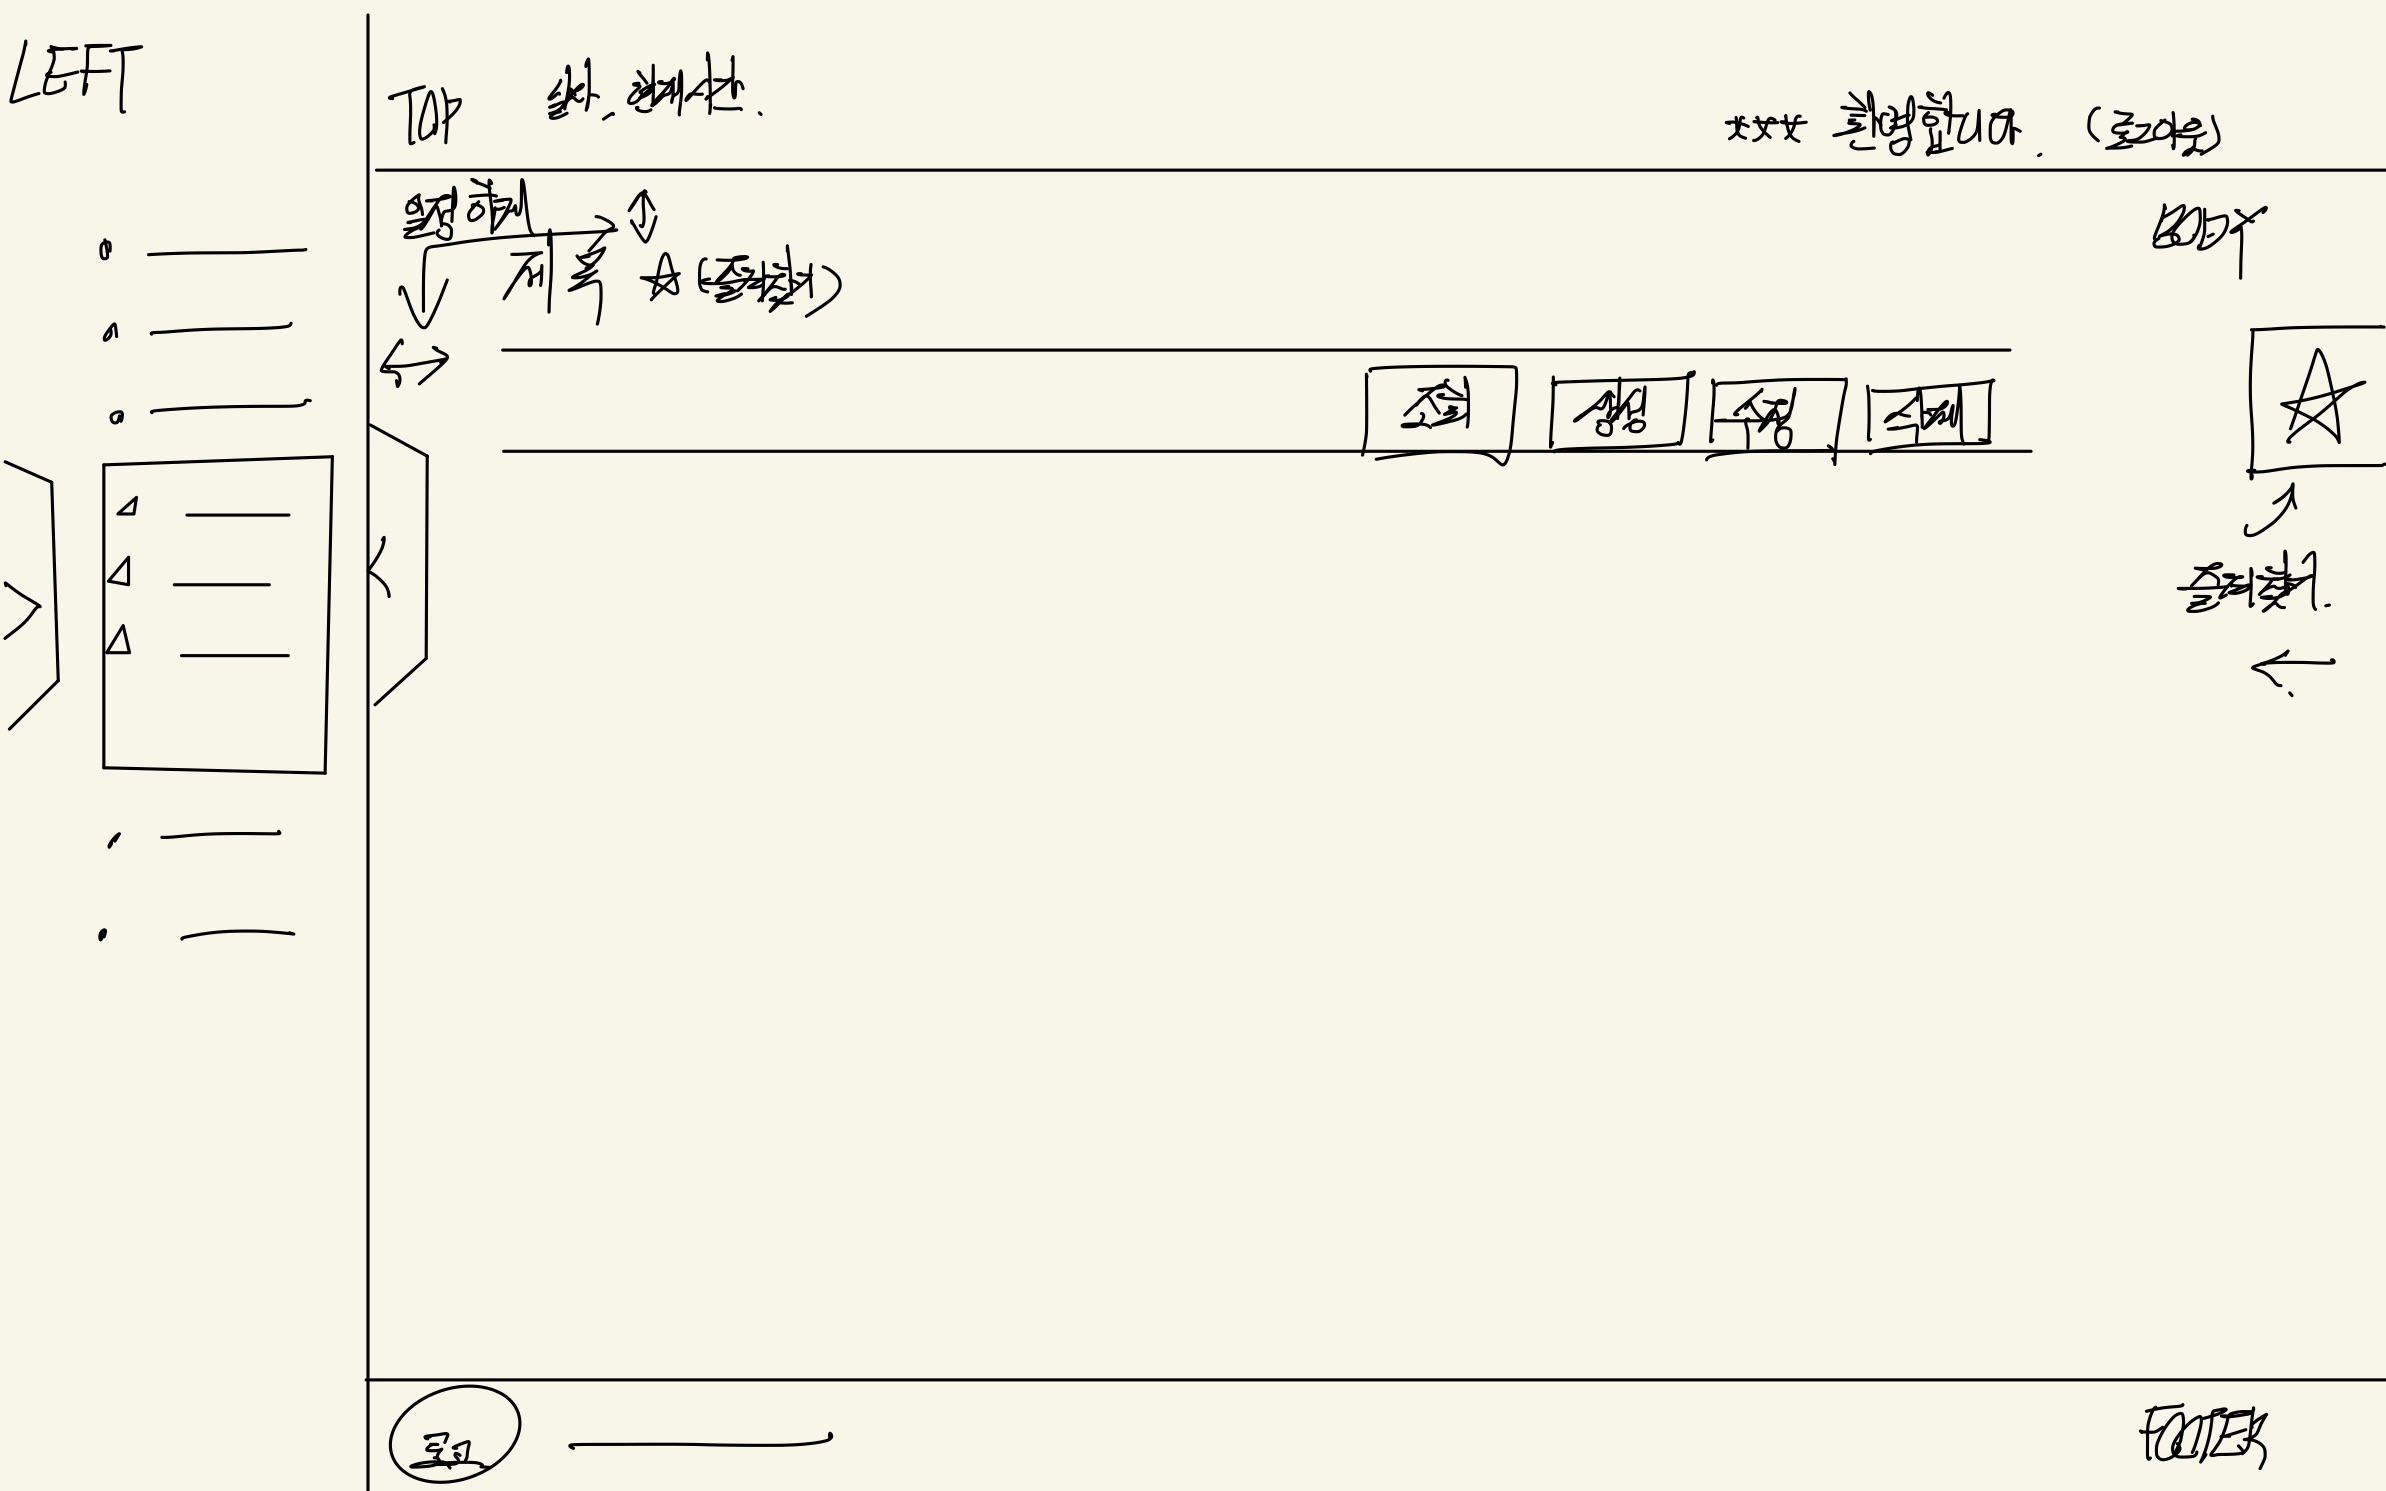 LEFT
TOP 날짜. 현재시간.
*** 환영합니다. (로그아웃)
BODY
제목 ☆ (즐겨찾기)
조회 생성 수정 삭제
즐겨찾기.
로고
FOOTER